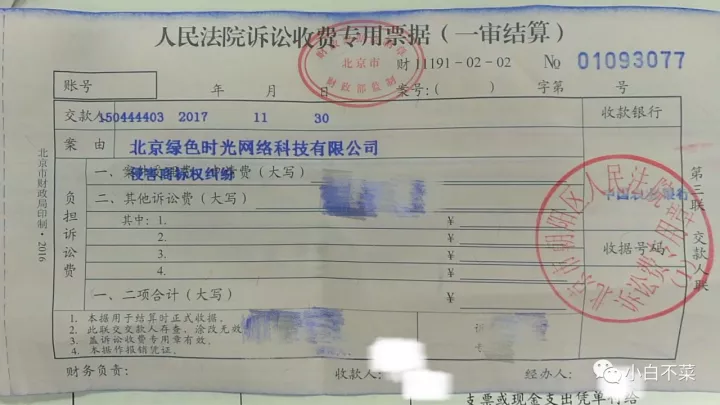 人民法院诉讼收费专用票据（一审结算）
北京市
财政部监制
财 11191-02-02
№ 01093077
账号
年 月 日
案号：( ) 字第 号
交款人 150444403 2017 11 30
收款银行
案由 北京绿色时光网络科技有限公司
侵害商标权纠纷
负担诉讼费
（大写）
二、其他诉讼费（大写）
其中：1. ¥
2. ¥
3. ¥
4. ¥
一、二项合计（大写） ¥
收据号码
北京市朝阳区人民法院
诉讼费专用章
(1)
第三联 交款人联
北京市财政局印制·2016
1. 本据用于结算时正式收据。
2. 此联交交款人存查，涂改无效
3. 盖诉讼收费专用章有效。
4. 本据作报销凭证。
财务负责：
收款人：
经办人：
小白不菜
支票或现金支出凭单科给